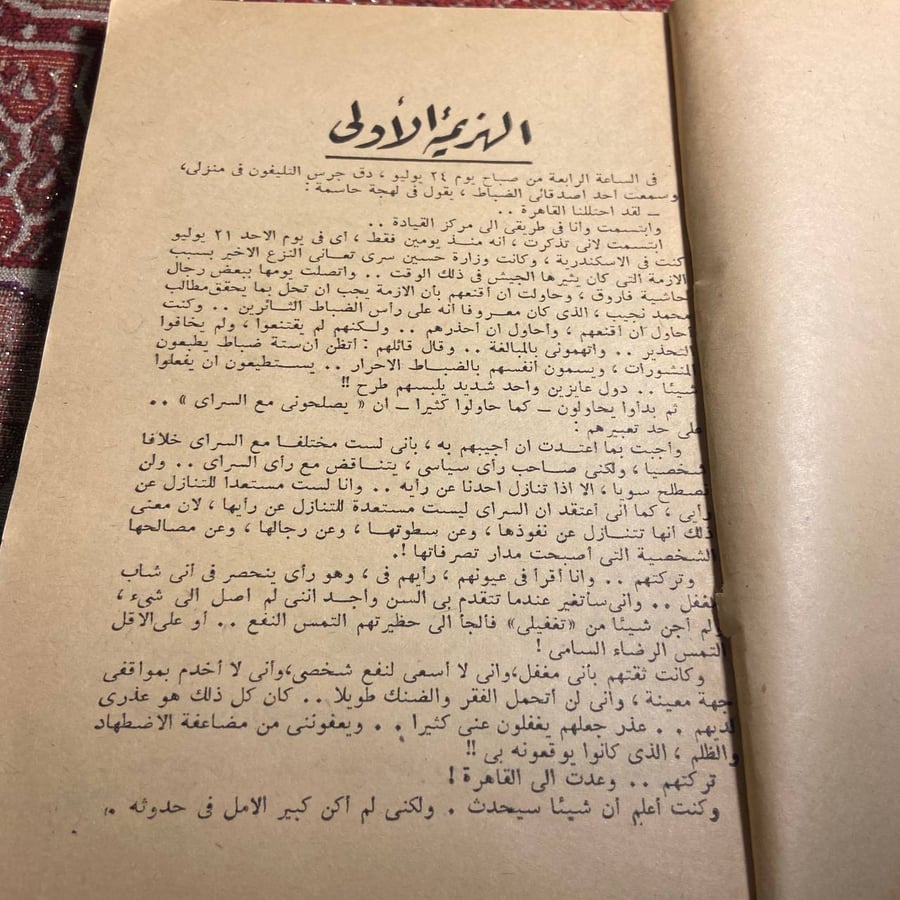 الهزيمة الأولى
فى الساعة الرابعة من صباح يوم ٢٤ يوليو ، دق جرس التليفون فى منزلى،
وسمعت أحد أصدقائى الضباط ، يقول فى لهجة حاسمة :
ـ لقد احتللنا القاهرة ..
وابتسمت وأنا فى طريقى الى مركز القيادة ..
ابتسمت لأنى تذكرت ، أنه منذ يومين فقط ، أى فى يوم الاحد ٢١ يوليو
كنت فى الاسكندرية ، وكانت وزارة حسين سرى تعانى النزع الاخير بسبب
الازمة التى كان يثيرها الجيش فى ذلك الوقت .. واتصلت يومها ببعض رجال
حاشية فاروق ، وحاولت ان أقنعهم بأن الازمة يجب ان تحل بما يحقق مطالب
محمد نجيب ، الذى كان معروفا أنه على رأس الضباط الثائرين .. وكنت
أحاول ان أقنعهم ، وأحاول ان أحذرهم .. ولكنهم لم يقتنعوا ، ولم يخافوا
التحذير .. واتهمونى بالمبالغة .. وقال قائلهم : أتظن ان ستة ضباط يطبعون
المنشورات ، ويسمون أنفسهم بالضباط الاحرار .. يستطيعون ان يفعلوا
شيئا .. دول عايزين واحد شديد يلبسهم طرح !!
ثم بدأوا يحاولون ـ كما حاولوا كثيرا ـ ان « يصلحونى مع السراى » ..
على حد تعبيرهم :
وأجبت بما اعتدت ان أجيبهم به ، بأنى لست مختلفا مع السراى خلافا
شخصيا ، ولكنى صاحب رأى سياسى ، يتناقض مع رأى السراى .. ولن
نصطلح سويا ، الا اذا تنازل أحدنا عن رأيه .. وانا لست مستعدا للتنازل عن
رأيى ، كما أنى أعتقد ان السراى ليست مستعدة للتنازل عن رأيها ، لان معنى
ذلك أنها تتنازل عن نفوذها ، وعن سطوتها ، وعن رجالها ، وعن مصالحها
الشخصية التى أصبحت مدار تصرفاتها !.
وتركتهم .. وانا أقرأ فى عيونهم ، رأيهم فى ، وهو رأى ينحصر فى أنى شاب
مغفل .. وانى سأتغير عندما تتقدم بى السن واجد اننى لم اصل الى شىء ،
ولم أجن شيئا من «تغفيلى» فألجأ الى حظيرتهم التمس النفع .. أو على الاقل
التمس الرضاء السامى !
وكانت ثقتهم بأنى مغفل، وانى لا أسعى لنفع شخصى، وأنى لا أخدم بمواقفى
جهة معينة ، وانى لن أتحمل الفقر والضنك طويلا .. كان كل ذلك هو عذرى
لديهم .. عذر جعلهم يغفلون عنى كثيرا .. ويعفوننى من مضاعفة الاضطهاد
والظلم ، الذى كانوا يوقعونه بى !!
تركتهم .. وعدت الى القاهرة !
وكنت أعلم أن شيئا سيحدث . ولكنى لم أكن كبير الامل فى حدوثه .